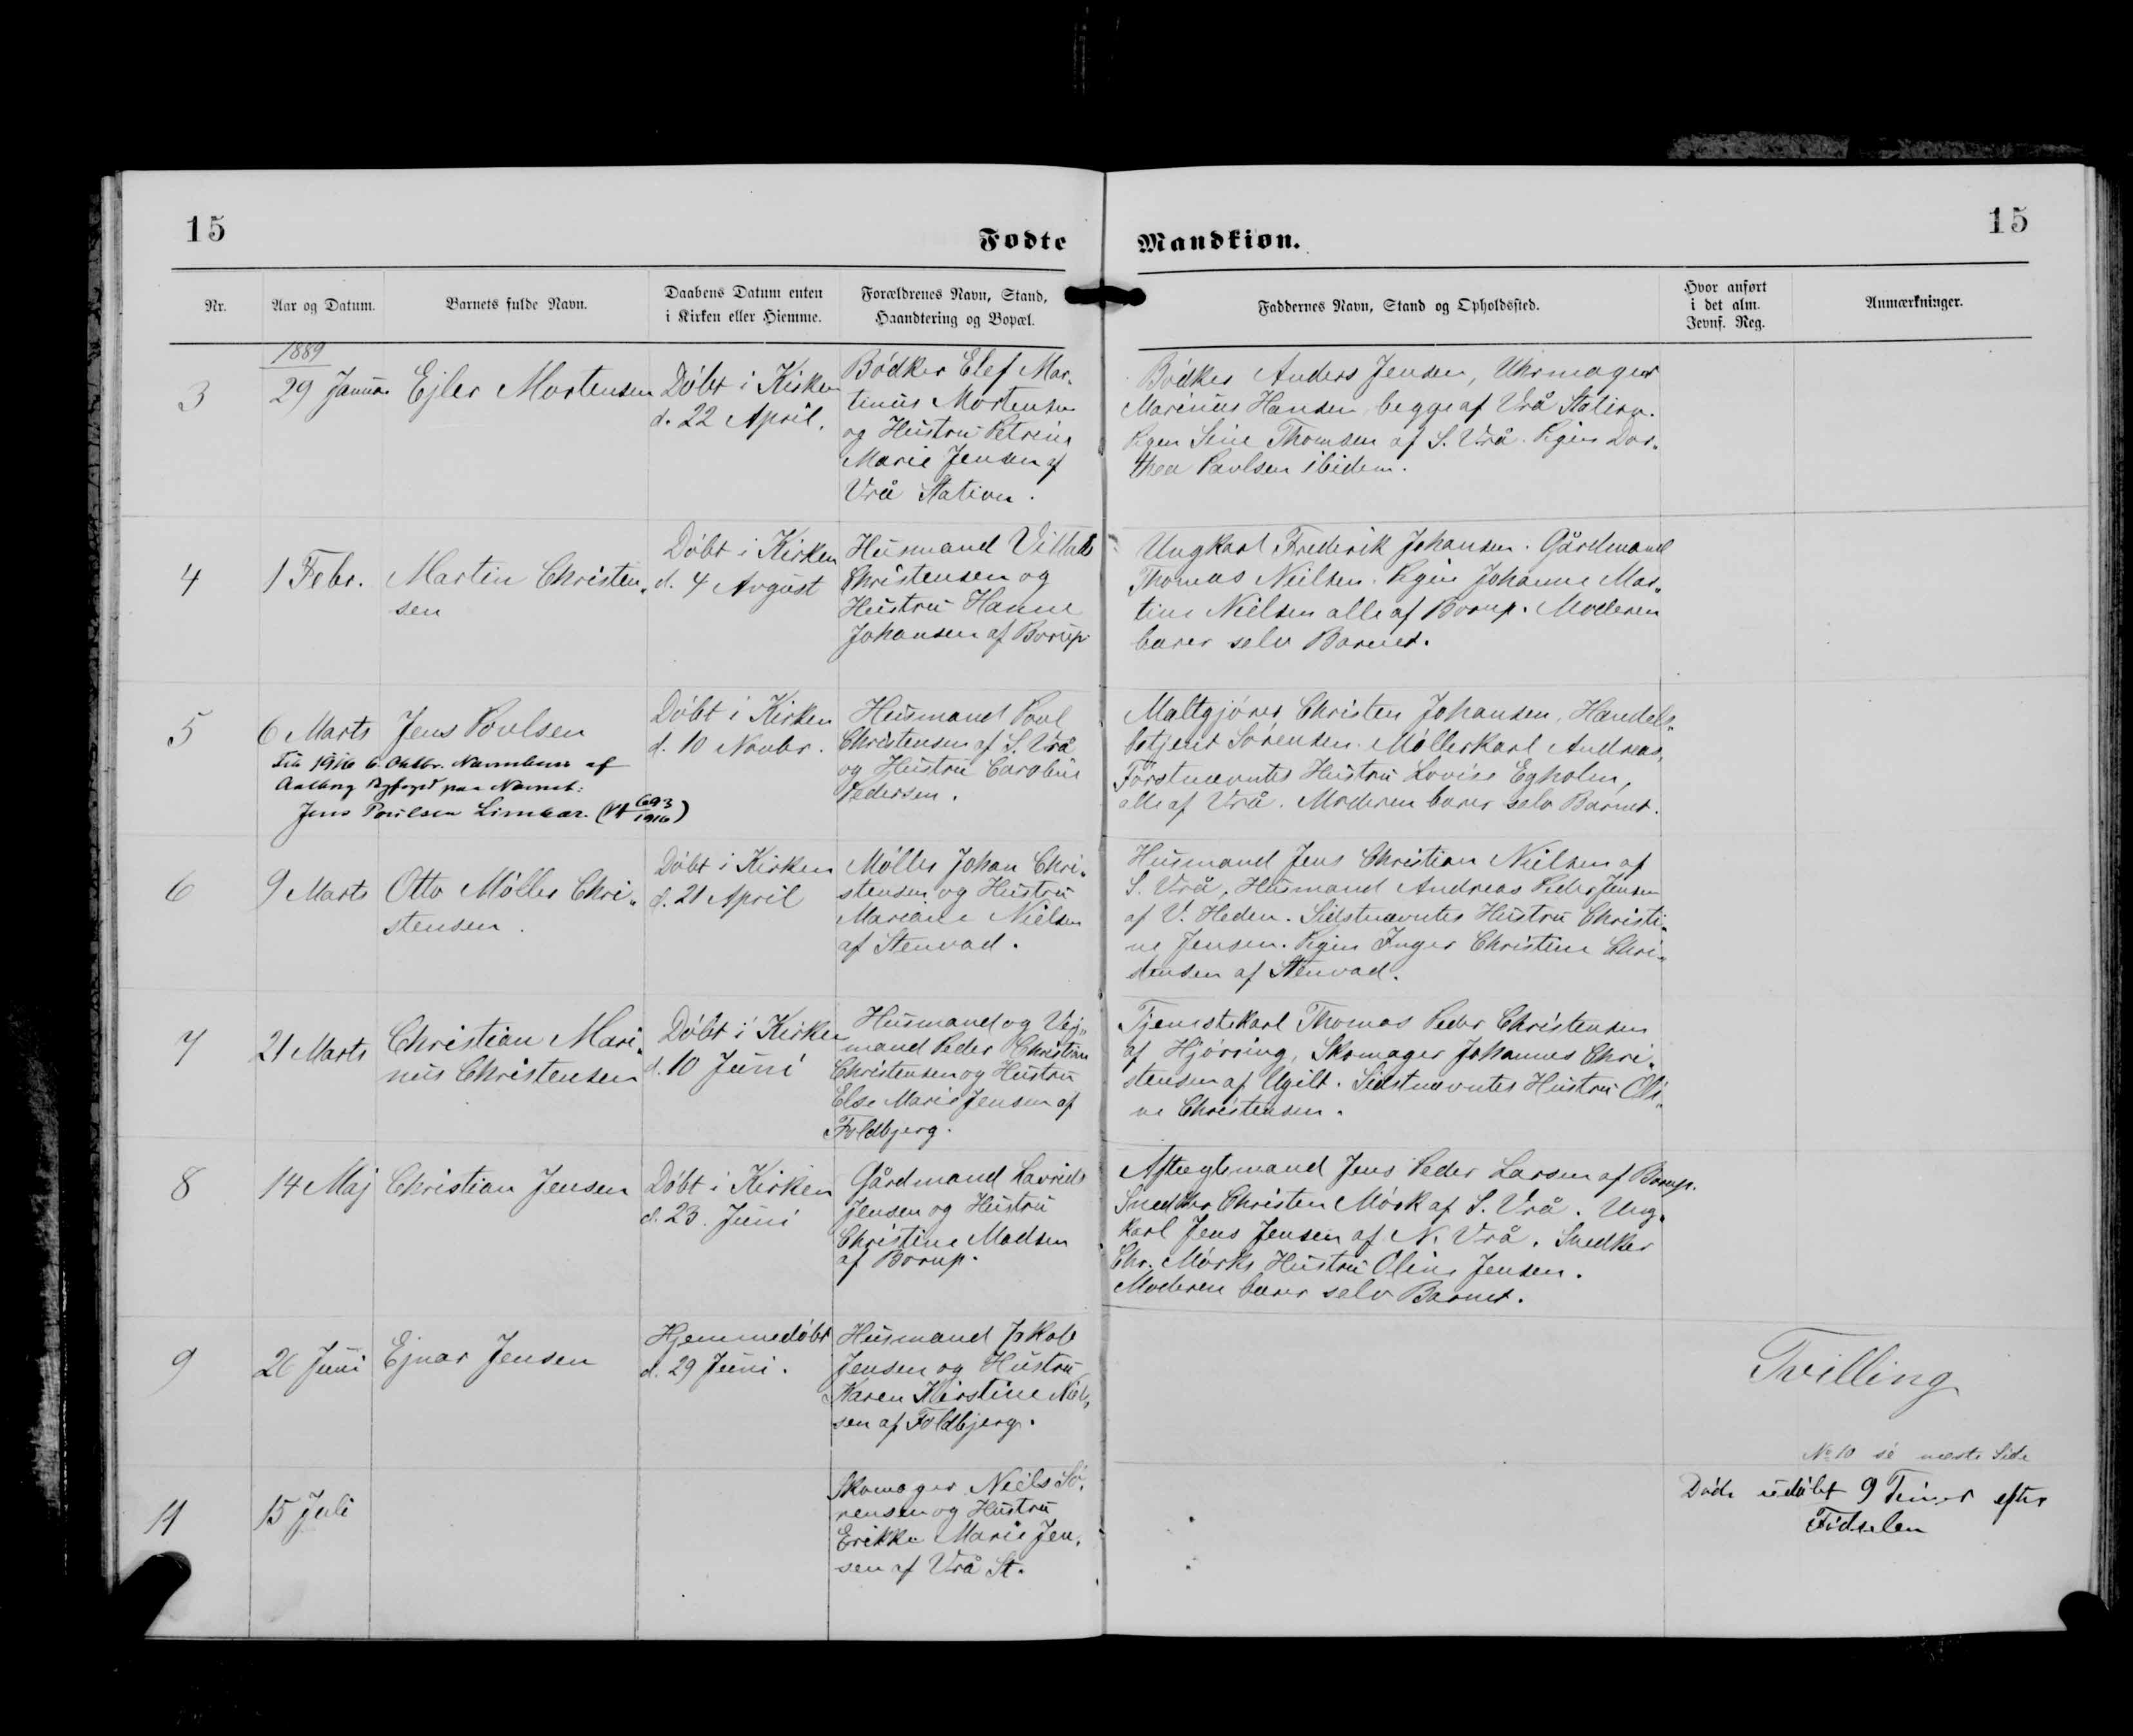 15
15
Fødte
Mandkiøn.
Nr.
Aar og Datum.
Barnets fulde Navn.
Daabens Datum enten
i Kirken eller Hiemme.
Forældrenes Navn, Stand,
Haandtering og Bopæl.
Faddernes Navn, Stand og Opholdssted.
Hvor anført
i det alm.
Jevnf. Reg.
Anmærkninger.
1889
3
29 Janua.
Ejler Mortensen
Døbt i Kirken
d. 22 April.
Bødker Elef Mar-
tinus Mortensen
og Hustru Petrine
Marie Jensen af
Vrå Station.
Bødker Anders Jensen, Uhrmager
Marinus Hansen, begge af Vrå Station.
Pigen Sine Thomsen af S. Vrå. Pigen Dor-
thea Pavlsen ibidem.
4
1 Febr.
Martin Christen-
sen
Døbt i Kirken
d. 4 Avgust
Husmand
Christensen og
Hustru Hanne
Johansen af Borup
Ungkarl Frederik Johansen. Gårdmand
Thomas Nielsen. Pigen Johanne Mar-
tine Nielsen alle af Borup. Moderen
barer selv Barnet.
5
6 Marts
Jens Povlsen
1916 6. Oktbr. af
Aalborg paa Navnet:
Jens Poulsen (693/1916)
Døbt i Kirken
d. 10 Novbr.
Husmand Povl
Christensen af S. Vrå
og Hustru Caroline
Pedersen.
Maltgjører Christen Johansen, Handels-
betjent Sørensen. Møllerkarl Andreas,
Førstnævntes Hustru Lovise Egholm,
alle af Vrå. Moderen barer selv Barnet.
6
9 Marts
Otto Møller Chri-
stensen.
Døbt i Kirken
d. 21 April
Møller Johan Chri-
stensen og Hustru
Mariane Nielsen
af Stenvad.
Husmand Jens Christian Nielsen af
S. Vrå. Husmand Andreas Peder Jensen
af V. Heden. Sidstnævntes Hustru Christi-
ne Jensen. Pigen Inger Christine Chri-
stensen af Stenvad.
7
21 Marts
Christian Mari-
nus Christensen
Døbt i Kirken
d. 10 Juni
Husmand og Vej-
mand Peder Christian
Christensen og Hustru
Else Marie Jensen af
Foldbjerg.
Tjenestekarl Thomas Peder Christensen
af Hjørring, Skomager Johannes Chri-
stensen af Ugilt. Sidstnævntes Hustru Oli-
ne Christensen.
8
14 Maj
Christian Jensen
Døbt i Kirken
d. 23. Juni
Gårdmand Lavrids
Jensen og Hustru
Christine Madsen
af Borup.
Aftægtsmand Jens Peder Larsen af Borup.
Snedker Christen Mørk af S. Vrå. Ung-
karl Jens Jensen af N. Vrå. Snedker
Chr. Mørks Hustru Oline Jensen.
Moderen barer selv Barnet.
9
26 Juni
Ejnar Jensen
Hjemmedøbt
d. 29 Juni.
Husmand Jakob
Jensen og Hustru
Karen Kirstine Niel-
sen af Foldbjerg.
Tvilling
No 10 se næste Side
11
15 Juli
Skomager Niels Sø-
rensen og Hustru
Erikke Marie Jen-
sen af Vrå St.
Døde udøbt 9 Timer efter
Fødselen